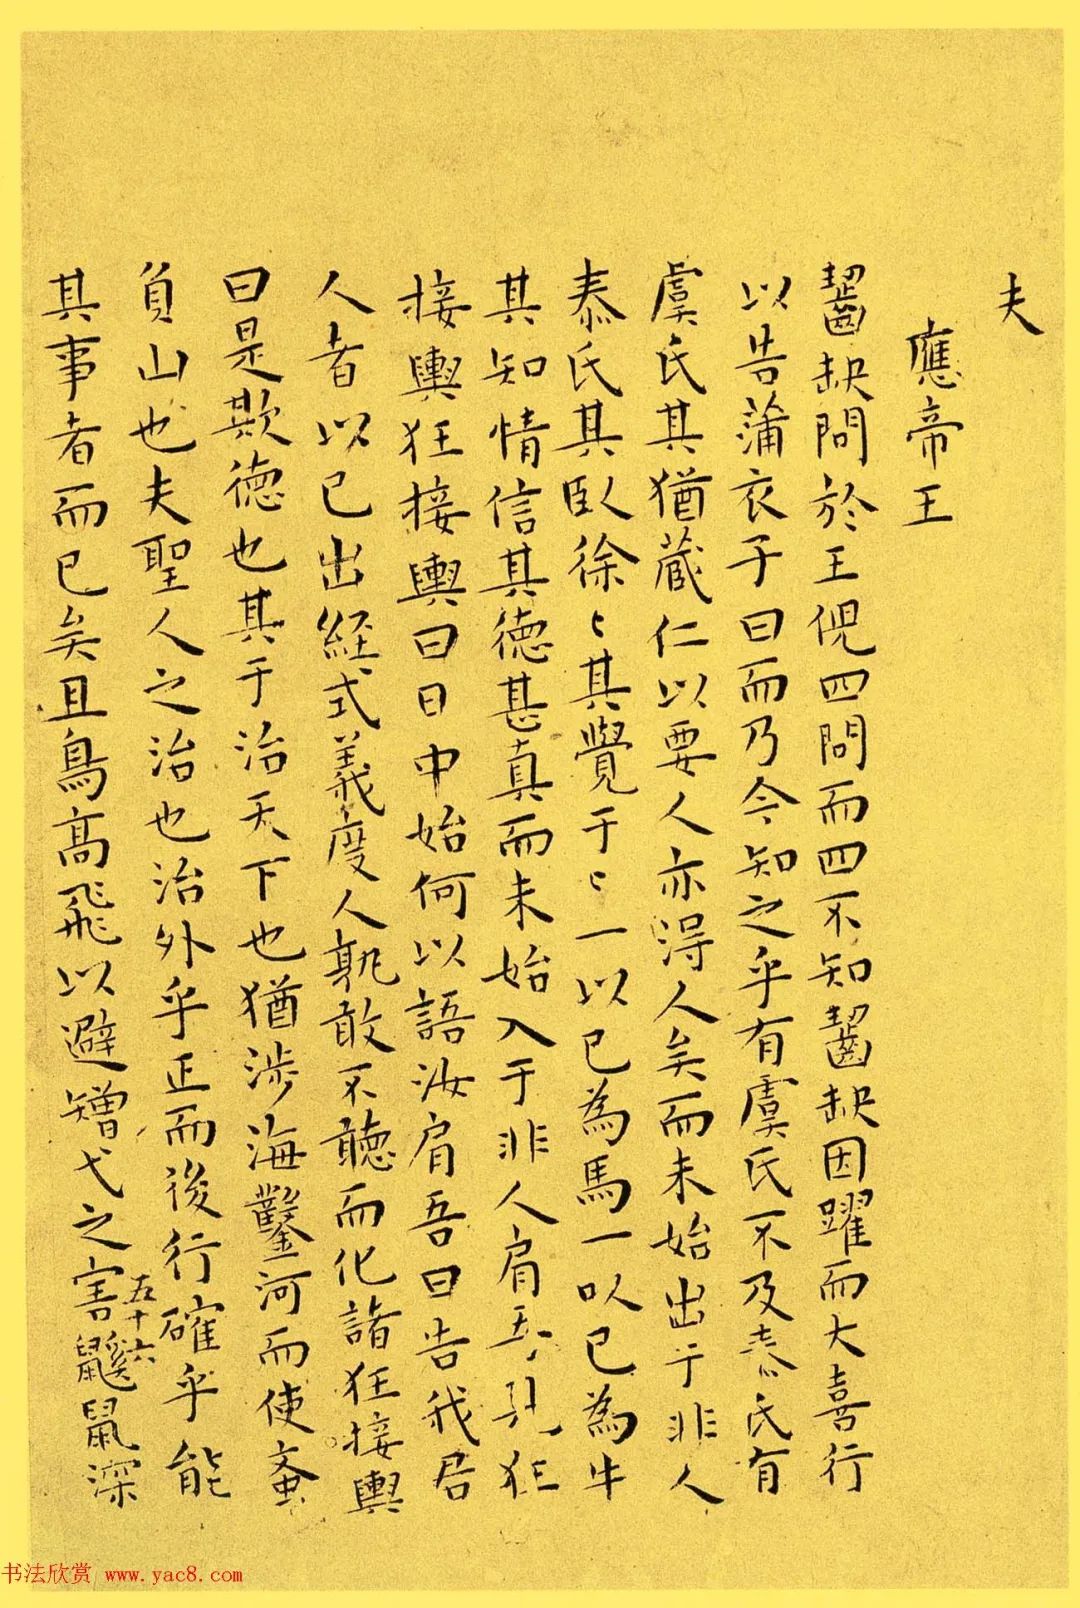 夫
應帝王
齧缺問於王倪四問而四不知齧缺因躍而大喜行
以告蒲衣子曰而乃今知之乎有虞氏不及泰氏有
虞氏其猶藏仁以要人亦得人矣而未始出于非人
泰氏其臥徐〻其覺于〻一以已為馬一以已為牛
其知情信其德甚真而未始入于非人肩狂
接輿狂接輿曰日中始何以語汝肩吾曰告我君
人者以已出経式義度人孰敢不聽而化諸狂接輿
曰是欺德也其于治天下也猶涉海鑿河而使蚤
負山也夫聖人之治也治外乎正而後行確乎能
其事者而已矣且鳥高飛以避矰弋之害鼷鼠深
五十六
书法欣赏 www.yac8.com